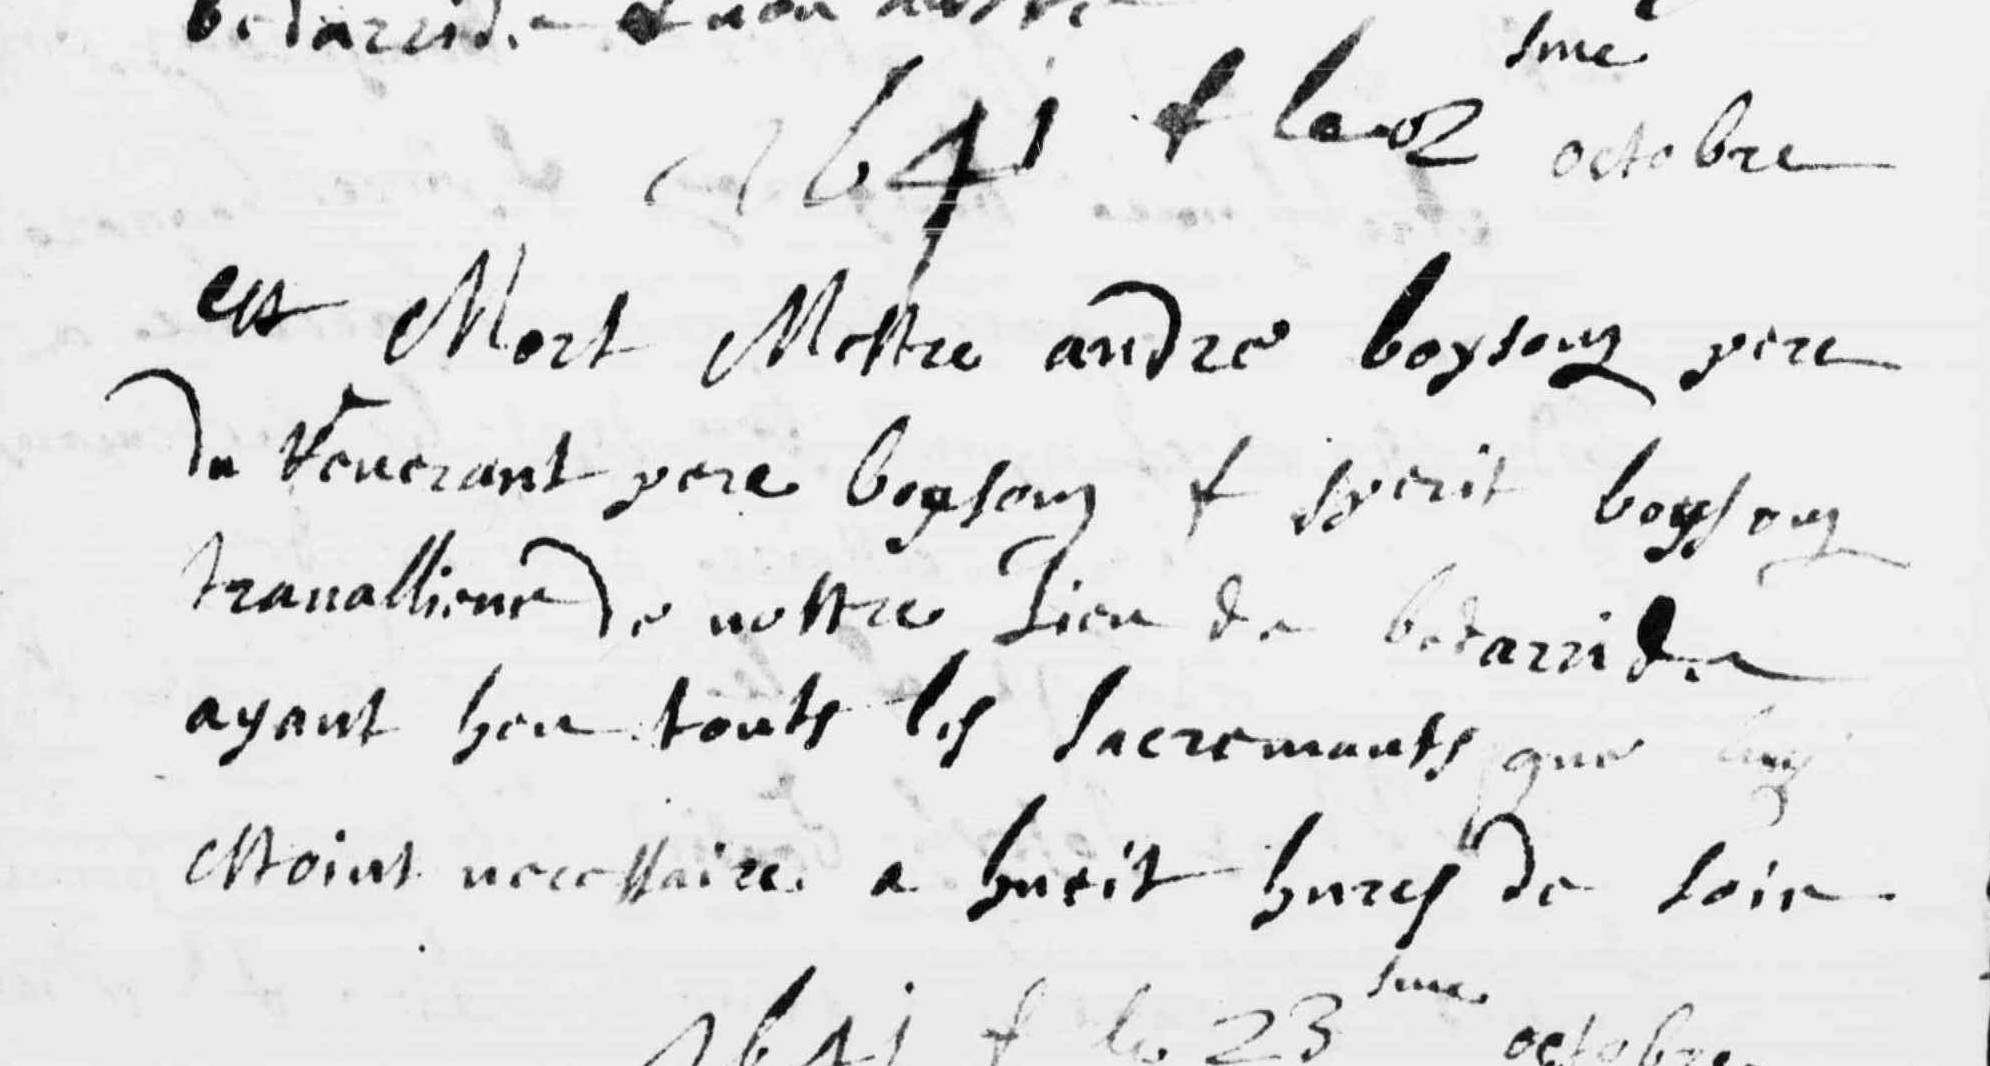 bedarride &
1641 & le 2 sme octobre
est Mort Mestre andre boyson pere
du Venerant pere boyson & sperit boyson
travallieur de nostre Lieu de bedarride
ayant heu touts les sacremants que luy
estoint necessaire a hueit hures de soir
1641 & le 23 sme octobre